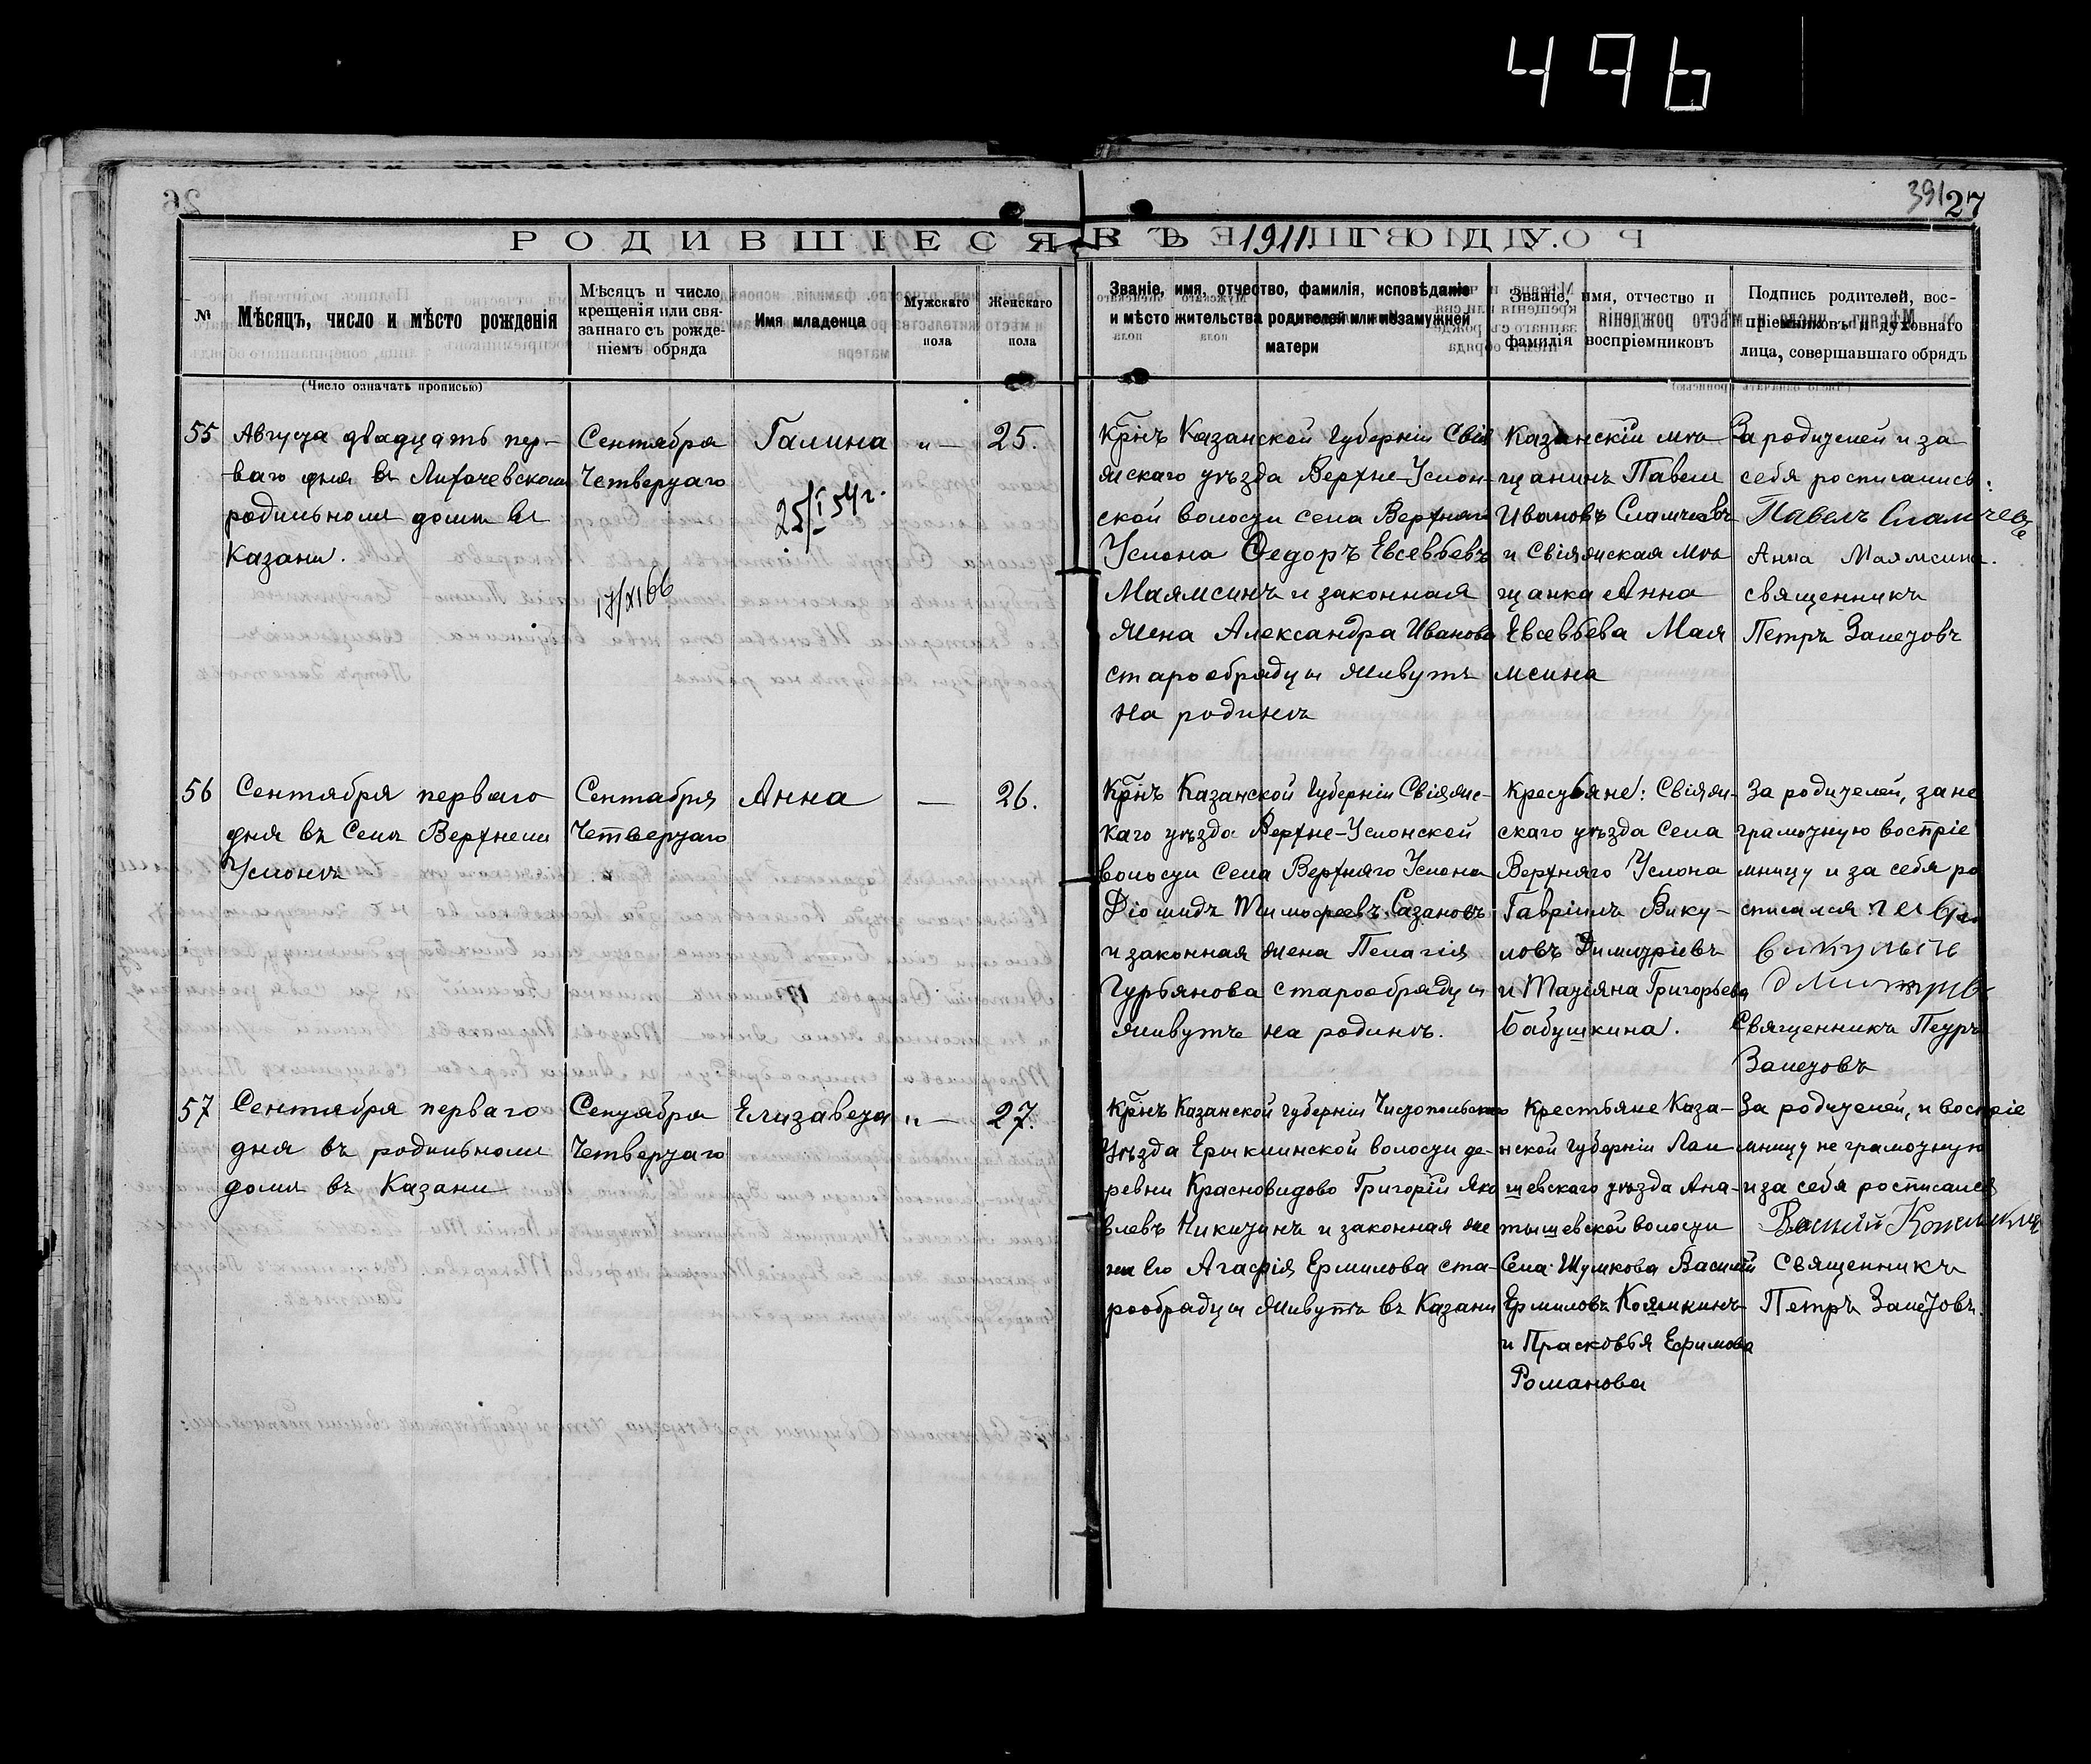 496
391 27
РОДИВШІЕСЯ ВЪ 1911 ГОДУ.
№
Мѣсяцъ, число и мѣсто рожденія
(Число означать прописью)
Мѣсяцъ и число
крещенія или свя-
заннаго съ рожде-
ніемъ обряда
Имя младенца
Мужскаго
пола
Женскаго
пола
Званіе, имя, отчество, фамилія, исповѣданіе
и мѣсто жительства родителей или незамужней
матери
Званіе, имя, отчество и
фамилія воспріемниковъ
Подпись родителей, вос-
пріемниковъ и духовнаго
лица, совершавшаго обрядъ
55
Августа двадцать пер-
ваго дня въ Лихачевскомъ
родильномъ домѣ въ
Казани.
Сентября
Четвертаго
17/XI 66
Галина
25/I 54 г.
"—
25.
Крⷭ҇нъ Казанской губерніи Свія
жскаго уѣзда Верхне-Услон-
ской волости села Верхняго
Услона Ѳедоръ Евсевьевъ
Маямсинъ и законная
жена Александра Иванова
старообрядцы живутъ
на родинѣ
Казанскій мѣ-
щанинъ Павелъ
Ивановъ Сламчевъ
и Свіяжская мѣ
щанка Анна
Евсевьева Мая
мсина
За родителей и за
себя росписались:
Павелъ Сламчевъ
Анна Маямсина.
священникъ
Петръ Залетовъ
56
Сентября перваго
дня въ Селѣ Верхнемъ
Услонѣ
Сентября
Четвертаго
Анна
—
26.
Крнъ Казанской губерніи Свіяжс-
каго уѣзда Верхне-Услонской
волости Села Верхняго Услона
Діомидъ Тимофеевъ Сазановъ
и законная жена Пелагія
Гурьянова старообрядцы
живутъ на родинѣ.
Крестьяне: Свіяж-
скаго уѣзда Села
Верхняго Услона
Гавріилъ Вику-
ловъ Димитріевъ
и Татіяна Григорьева
Бабушкина.
За родителей, за не
грамотную воспріе
мницу и за себя ро
списался:
викулычъ
дмитрив
Священникъ Петръ
Залетовъ
57
Сентября перваго
дня въ родильномъ
домѣ въ Казани
Сентября
Четвертаго
Елизавета
"—
27.
Крнъ Казанской губерніи Чистопольскаго
Уѣзда Ерыклинской волости де-
ревни Красновидово Григорій Яко
влевъ Никитинъ и законная же
на его Агафія Ермилова ста-
рообрядцы живутъ въ Казани
Крестьяне Каза-
нской губерніи Лаи
шевскаго уѣзда Ана-
тышевской волости
Села Шумкова Василій
Ермиловъ Кожмкинъ
и Прасковья Ефимова
Романова
За родителей, и воспріе
мницу не грамотную
и за себя росписался
Священникъ
Петръ Залетовъ.